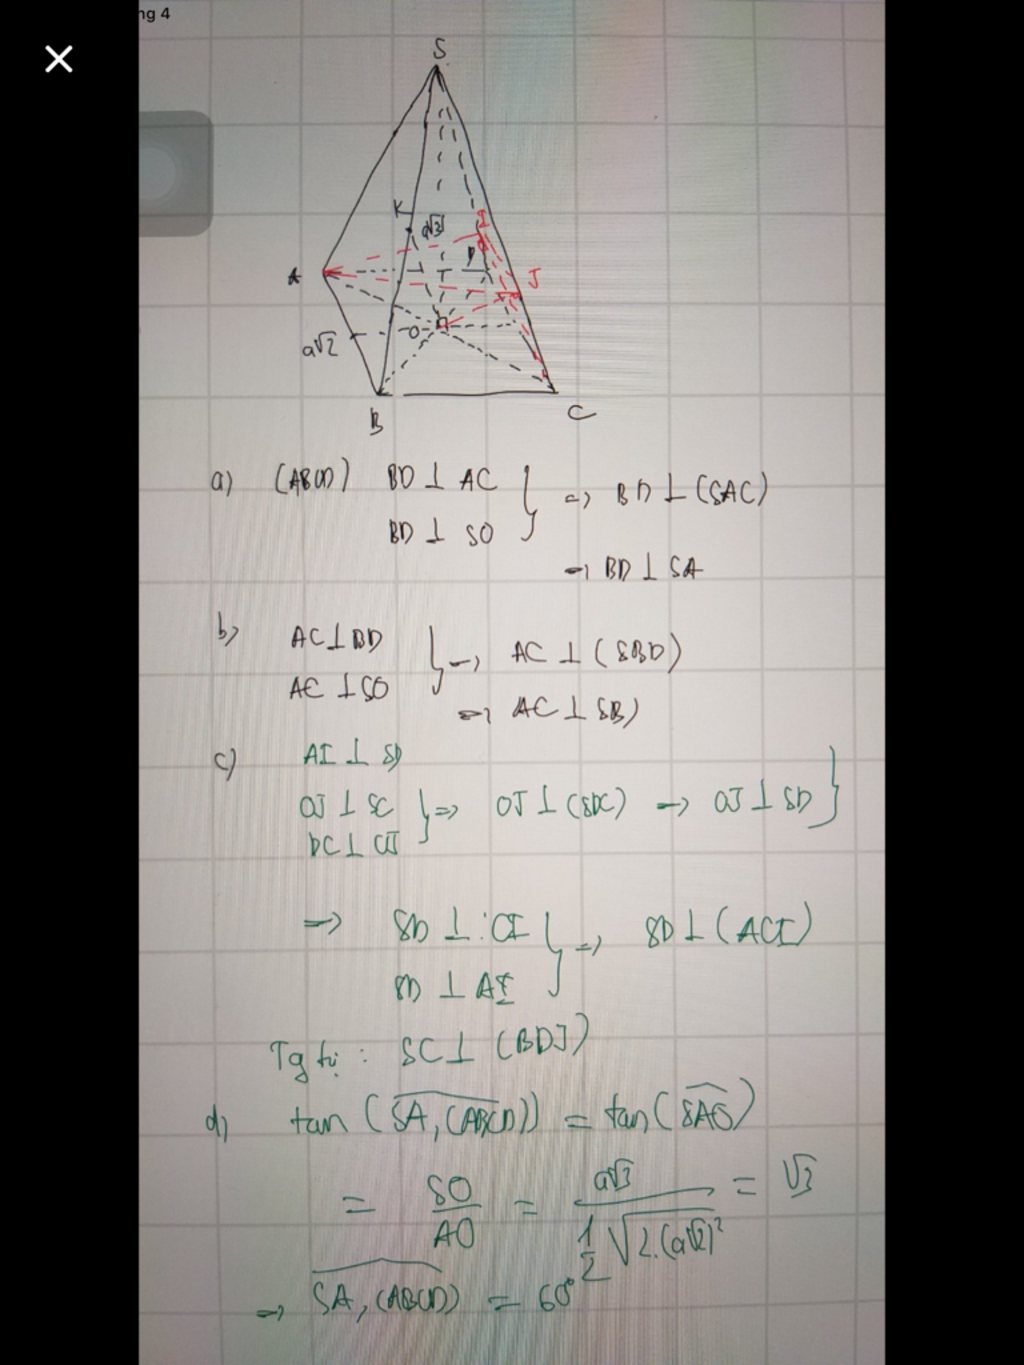 ng 4
S
K
a√3
I
D
J
A
O
a√2
B
C
a) (ABCD) BD ⊥ AC } => BD ⊥ (SAC)
BD ⊥ SO
→ BD ⊥ SA
b) AC ⊥ BD } → AC ⊥ (SBD)
AC ⊥ SO
=> AC ⊥ SB)
c) AI ⊥ SD
OJ ⊥ SC } => OJ ⊥ (SDC) → OJ ⊥ SD }
=> SD ⊥ CI } => SD ⊥ (ACI)
SD ⊥ AI
Tg tự : SC ⊥ (BDJ)
d) tan (SA, (ABCD)) = tan (SAO)
= SO/AO = a√3 / (1/2 √2.(a√2)²) = √3
=> SA, (ABCD)) = 60°